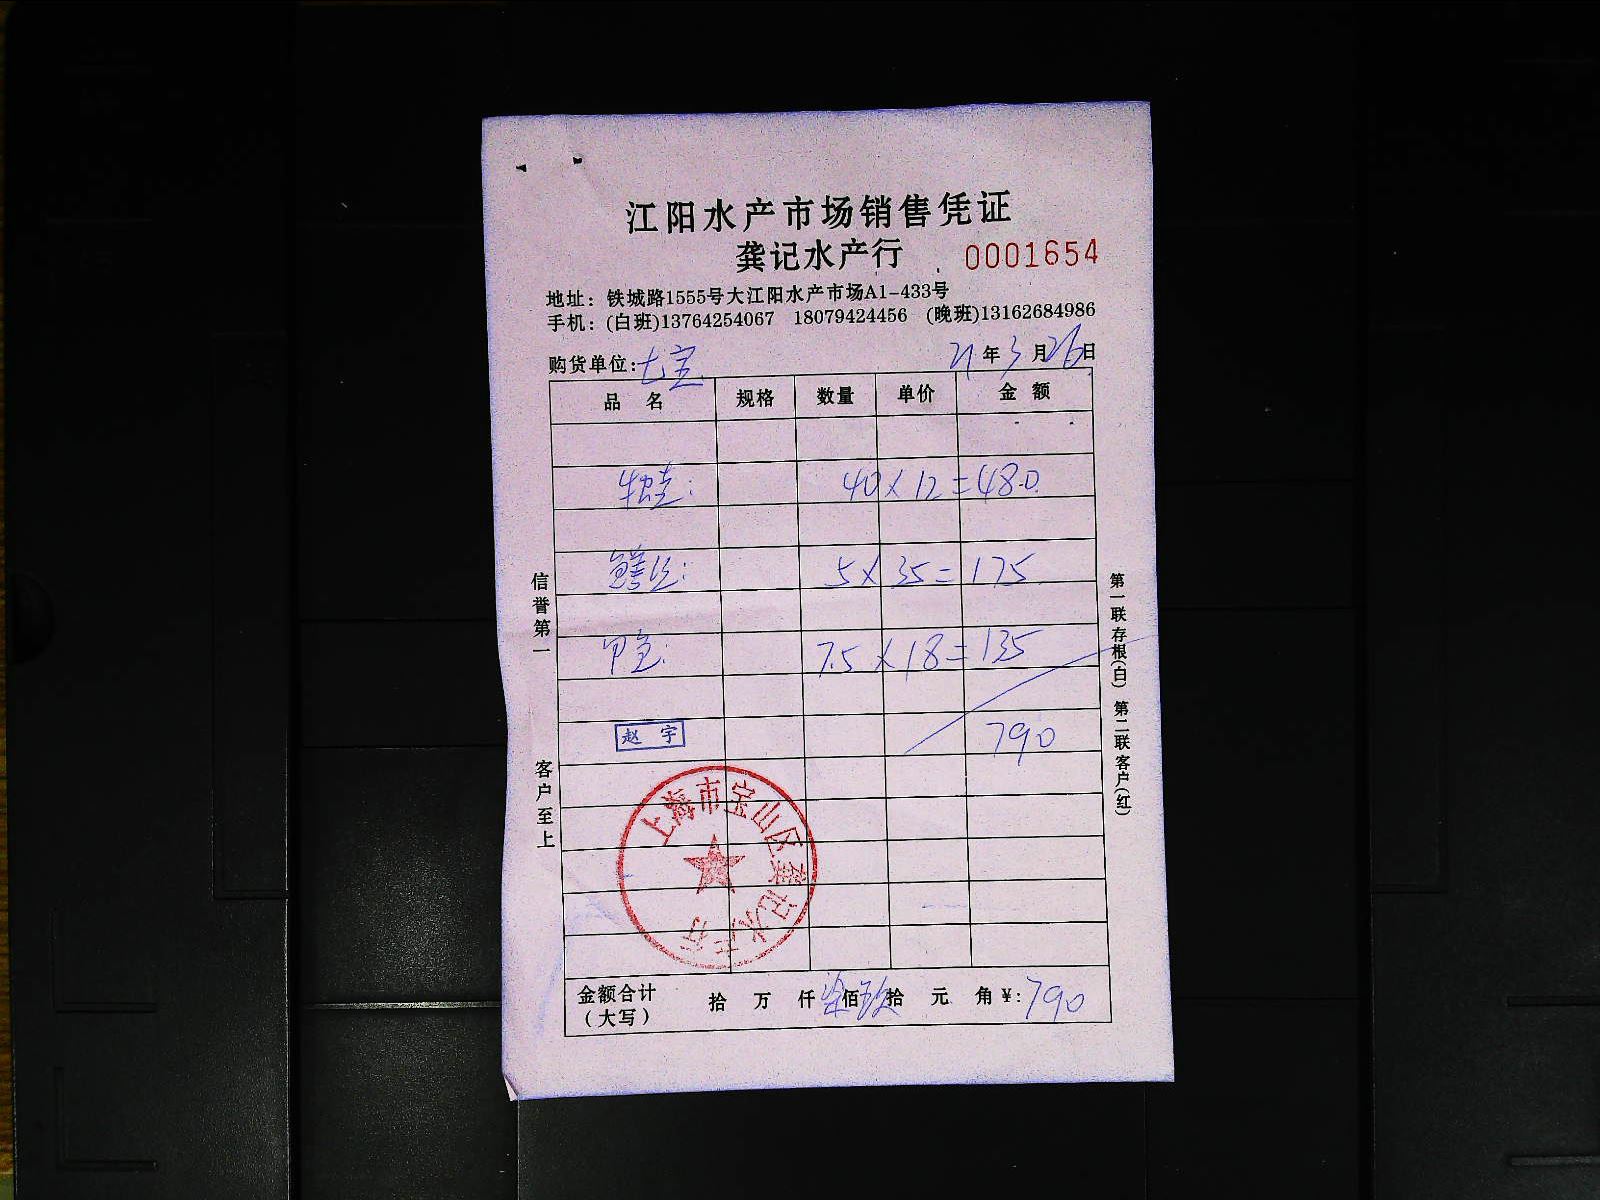 江阳水产市场销售凭证
龚记水产行 0001654
地址：铁城路1555号大江阳水产市场A1-433号
手机：(白班)13764254067 18079424456 (晚班)13162684986
购货单位：七宝 21年3月26日
品名 规格 数量 单价 金额
牛蛙： 40×12=480
鳝丝： 5×35=175
甲鱼： 7.5×18=135
赵宇 790
上海市宝山区龚记水产行
金额合计（大写） 拾 万 仟 柒佰玖拾 元 角 ¥：790
信誉第一
客户至上
第一联存根(白) 第二联客户(红)